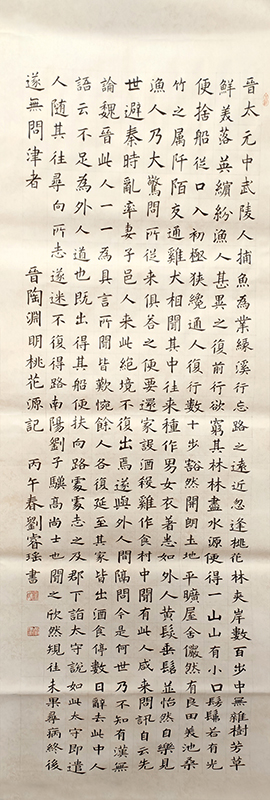 晉太元中武陵人捕魚為業緣溪行忘路之遠近忽逢桃花林夾岸數百步中無雜樹芳草
鮮美落英繽紛漁人甚異之復前行欲窮其林林盡水源便得一山山有小口髣髴若有光
便捨船從口入初極狹纔通人復行數十步豁然開朗土地平曠屋舍儼然有良田美池桑
竹之属阡陌交通雞犬相聞其中往來種作男女衣著悉如外人黃髮垂髫並怡然自樂見
漁人乃大驚問所從來俱答之便要還家設酒殺雞作食村中聞有此人咸來問訊自云先
世避秦時亂率妻子邑人來此絕境不復出焉遂與外人間隔問今是何世乃不知有漢無
論魏晉此人一一為具言所聞皆歎惋餘人各復延至其家皆出酒食停數日辭去此中人
語云不足為外人道也既出得其船便扶向路處處志之及郡下詣太守說如此太守即遣
人隨其往尋向所志遂迷不復得路南陽劉子驥高尚士也聞之欣然規往未果尋病終後
遂無問津者 晉陶淵明桃花源記 丙午春劉睿瑶書